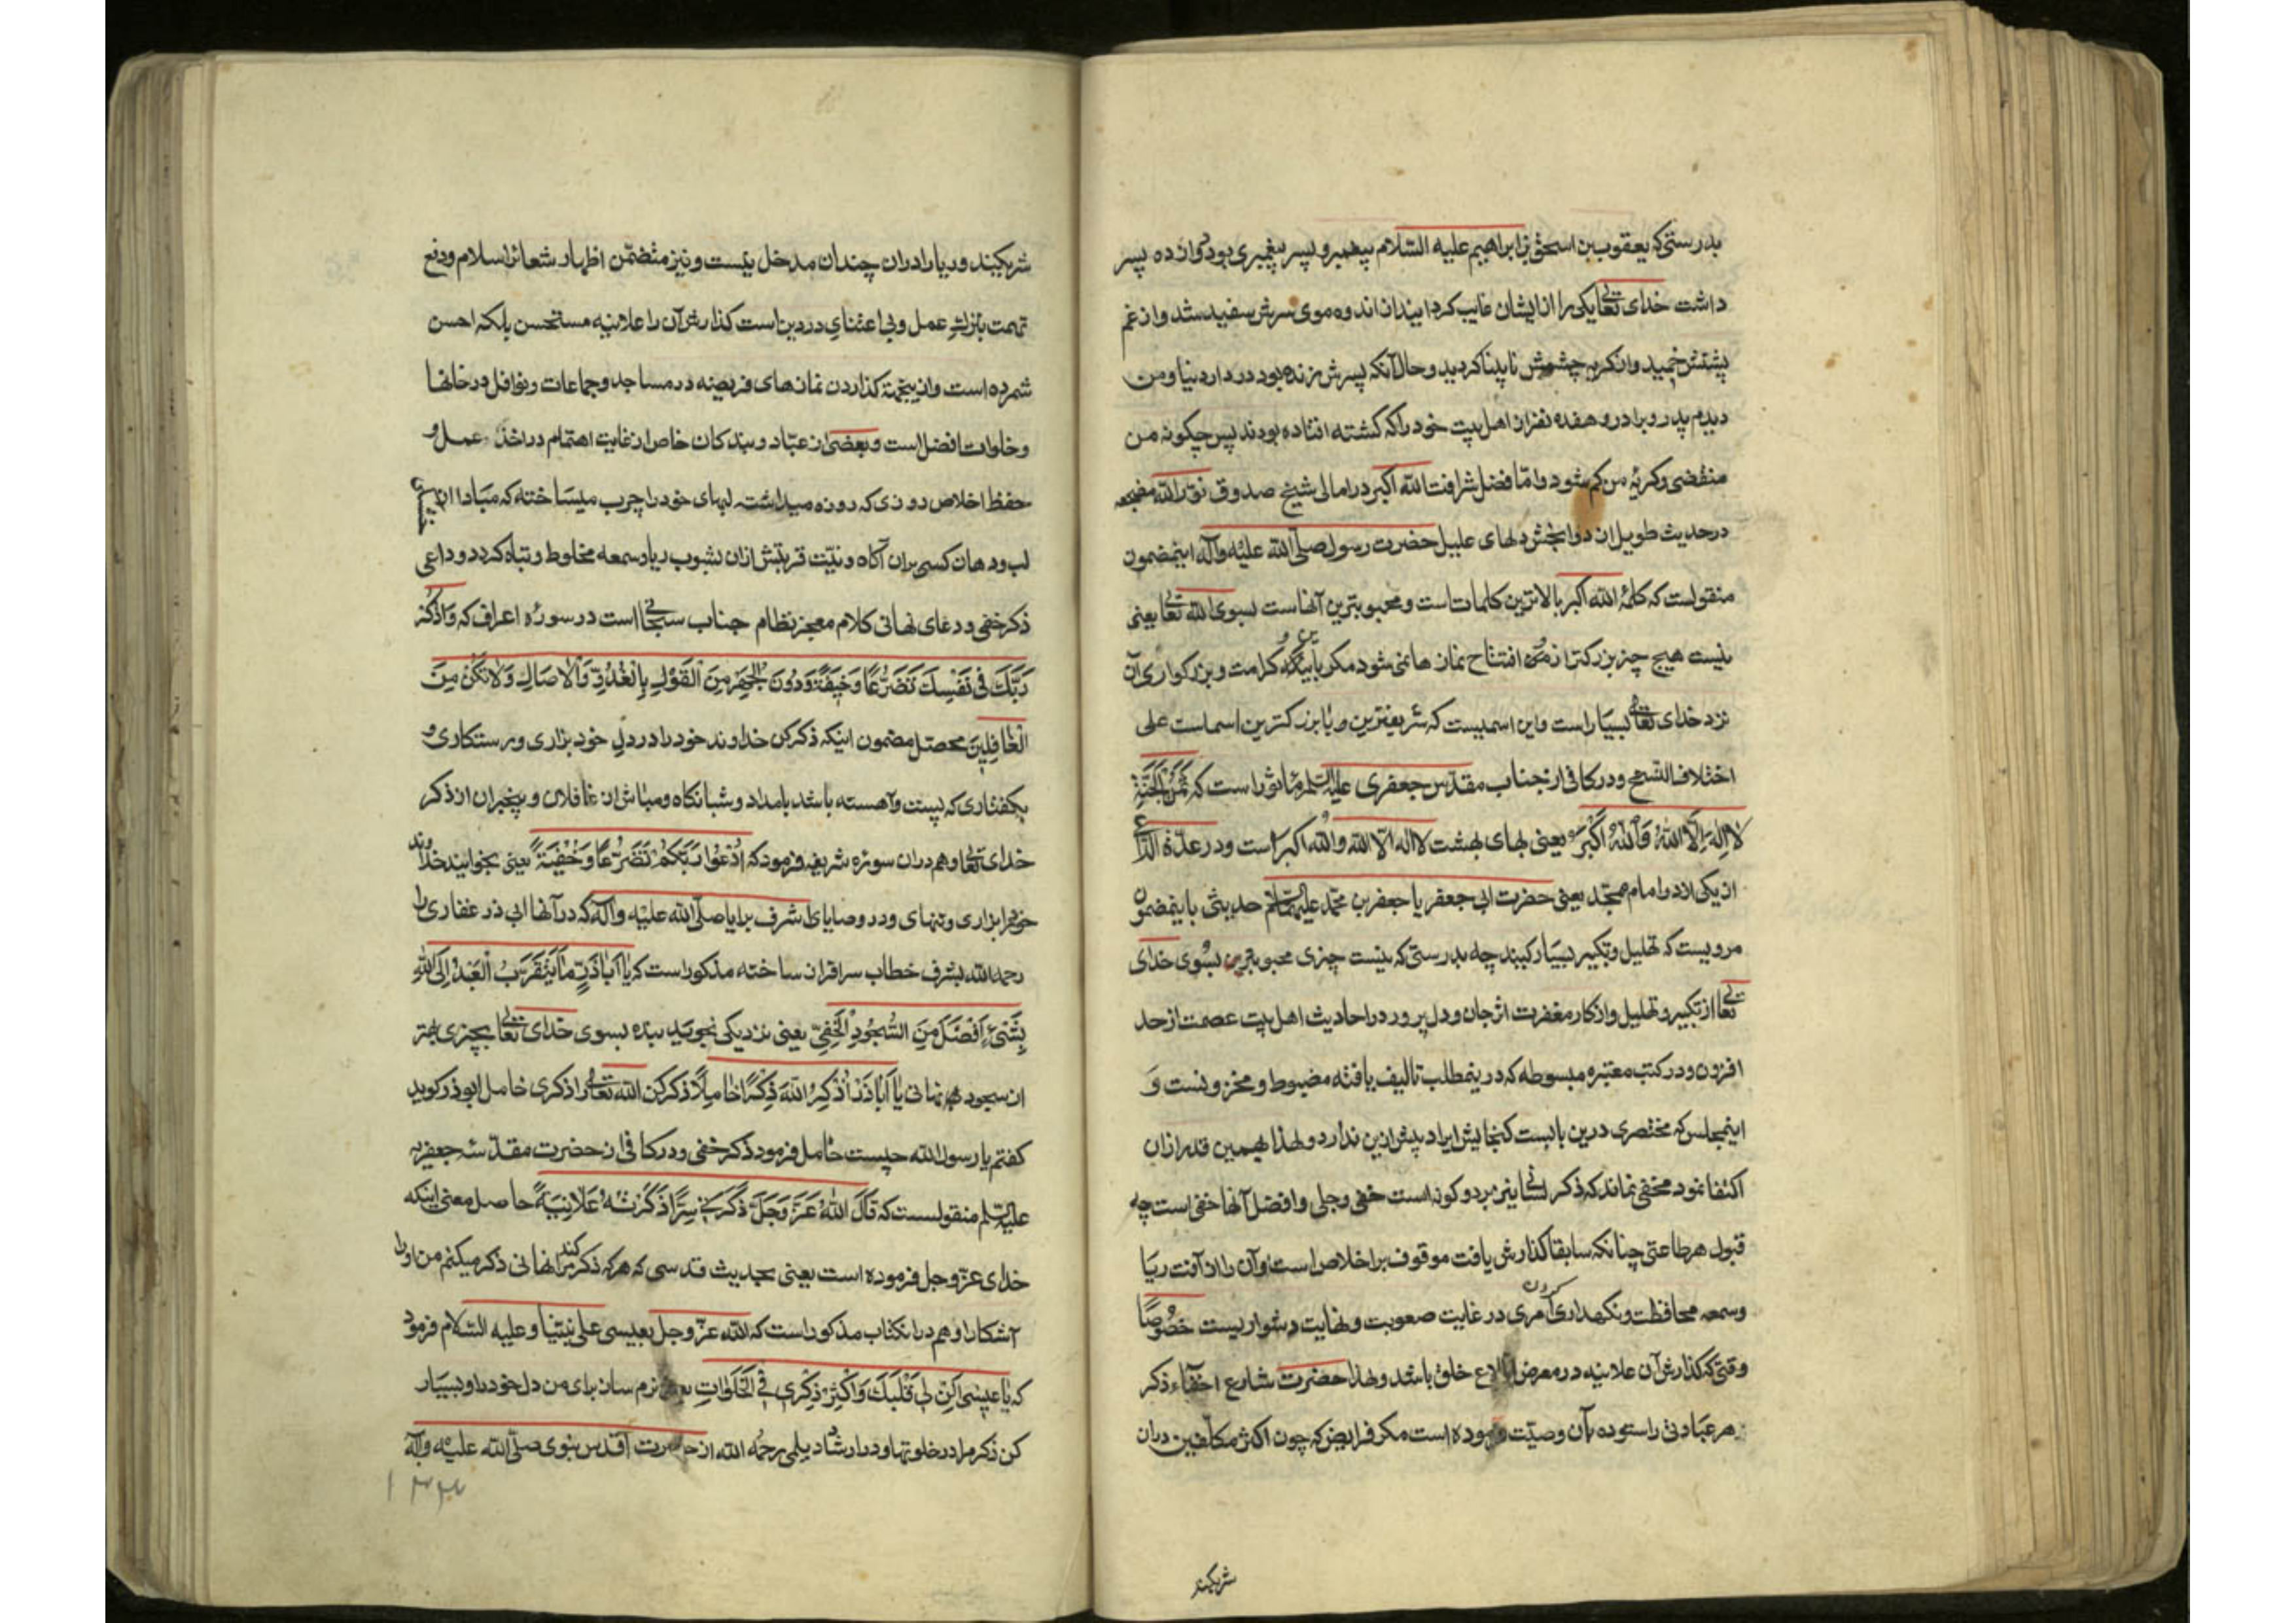 بدرستی که یعقوب بن اسحق بن ابراهیم علیه السلام پیغمبر و پسر پیغمبری بود دوازده پسر
داشت خدای تعالی یکی را از ایشان غایب کردانید از اندوه موی سرش سفید شد و از غم
پشتش خمید و از کریه چشمش نابینا کردید و حال آنکه پسرش زنده بود در دار دنیا و من
دیدم پدر و برادر و هفده نفر از اهل بیت خود را که کشته افتاده بودند پس چکونه من
منقضی و کریه من کم شود و اما فضل شرافت الله اکبر در امالی شیخ صدوق نور الله مضجعه
در حدیث طویل از دوابخش دلهای علیل حضرت رسول صلی الله علیه وآله اینمضمون
منقولست که کلمه الله اکبر بالاترین کلماتست و محبوبترین آنهاست بسوی الله تعالی یعنی
نیست هیچ چیز بزرکتر از من و افتتاح نمازها نمی شود مکر باین کلمه و کرامت و بزرکواری آن
نزد خدای تعالی بسیار است و این اسمیست که شریفترین و یا بزرکترین اسماست علی
اختلاف النسخ و در کافی از جناب مقدس جعفری علیه السلم ماثور است که ثمن الجنة
لا اِلهَ اِلَّا اللهُ وَاللهُ اَکْبَرُ یعنی بهای بهشت لا اله الا الله والله اکبر است و در عدة الداعی
از یکی از دو امام ممجد یعنی حضرت ابی جعفر یا جعفر بن محمد علیهما السلام حدیثی باینمضمون
مرویست که تهلیل و تکبیر بسیار کنید چه بدرستی که نیست چیزی محبوبترین بسوی خدای
تعالی از تکبیر و تهلیل و اذکار مغفرت اثر جان و دل پرور در احادیث اهل بیت عصمت از حد
افزون و در کتب معتبره مبسوطه که در ینمطلب تالیف یافته مضبوط و مخزونست و
اینمجلس که مختصری درین بابست کنجایش ایراد بیش ازین ندارد و لهذا بهمین قدر از آن
اکتفا نمود مخفی نماند که ذکر لسانی نیز بر دو کونه است خفی و جلی و افضل آنها خفی است چه
قبول هر طاعتی چنانکه سابقا کذارش یافت موقوف بر اخلاص است و آن را از آفت ریا
و سمعه محافظت و نکهداری کردن امری در غایت صعوبت و نهایت دشواریست خصوصًا
وقتی که کذارش آن علانیه در معرض اطلاع خلق باشد و لهذا حضرت شارع اخفاء ذکر
هر عبادتی را ستوده بآن وصیت فرموده است مکر فرایض که چون اکثر مکلفین در آن
شریکند
شریکند و ریا را در آن چندان مدخل نیست و نیز متضمن اظهار شعائر اسلام و دفع
تهمت بترک عمل و بی اعتنای در دین است کذارش آن را علانیه مستحسن بلکه احسن
شمرده است و از ینجهة کذاردن نمازهای فریضه در مساجد و جماعات و نوافل در خانها
و خلوات افضل است و بعضی از عباد و بندکان خاص از غایت اهتمام در اخذ عمل و
حفظ اخلاص روزی که روزه میداشت لبهای خود را چرب میساخته که مبادا از
لب و دهان کسی بر آن آکاه و نیت قربتش از آن بشوب ریا و سمعه مخلوط و تباه کردد و داعی
ذکر خفی و دعای نهانی کلام معجز نظام جناب سبحانی است در سوره اعراف که وَاذْکُرْ
رَبَّکَ فی نَفْسِکَ تَضَرُّعًا وَخیفَةً وَدُونَ الْجَهْرِ مِنَ الْقَوْلِ بِالْغُدُوِّ وَالْاٰصَالِ وَلَا تَکُنْ مِنَ
الْغَافِلینَ محصل مضمون اینکه ذکر کن خداوند خود را در دل خود بزاری و رستکاری و
بکفتاری که پست و آهسته باشد بامداد و شبانکاه و مباش از غافلان و بیخبران از ذکر
خدای تعالی و هم در آن سوره شریفه فرمود که اُدْعُوا رَبَّکُمْ تَضَرُّعًا وَخُفْیَةً یعنی بخوانید خداوند
خود را بزاری و تنهای و در وصایای اشرف برایا صلی الله علیه وآله که در آنها ابی ذر غفاری را
رحمه الله بشرف خطاب سرافراز ساخته مذکور است که یا اَبَاذَرٍّ مَا یَتَقَرَّبُ الْعَبْدُ اِلَی اللهِ
بِشَیْءٍ اَفْضَلَ مِنَ السُّجُودِ الْخَفِیِّ یعنی نزدیکی نجوید بنده بسوی خدای تعالی بچیزی بهتر
از سجود نهانی یا اَبَاذَر اُذْکُرِ اللهَ ذِکْرًا خَامِلًا ذکر کن الله تعالی را ذکری خامل ابوذر کوید
کفتم یا رسول الله چیست خامل فرمود ذکر خفی و در کافی از حضرت مقدسه جعفریه
علیه السلم منقولست که قَالَ اللهُ عَزَّ وَجَلَّ مَنْ ذَکَرَنی سِرًّا ذَکَرْتُهُ عَلَانِیَةً حاصل معنی اینکه
خدای عز و جل فرموده است یعنی بحدیث قدسی که هر که ذکر کند مرا نهانی ذکر میکنم من او را
آشکارا و هم در انکتاب مذکور است که الله عز و جل بعیسی علی نبینا و علیه السلام فرمود
که یَا عیسٰی اَلِنْ لی قَلْبَکَ وَاَکْثِرْ ذِکْری فی الْخَلَوَاتِ یعنی نرم ساز برای من دل خود را و بسیار
کن ذکر مرا در خلوتها و در ارشاد دیلمی رحمه الله از حضرت اقدس نبوی صلی الله علیه وآله